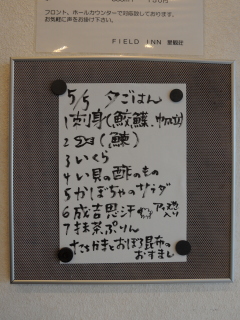 フロント、ホールカウンターで対応致しております。
お気軽に声をお掛け下さい。
FIELD INN
5/5 夕ごはん
1 刺身(鮫鰈、
2 (鰊)
3 いくら
4 い貝の酢のもの
5 かぼちゃのサラダ
6 成吉思汗
入り
7 抹茶ぷりん
たちかまとおぼろ昆布の
おすまし